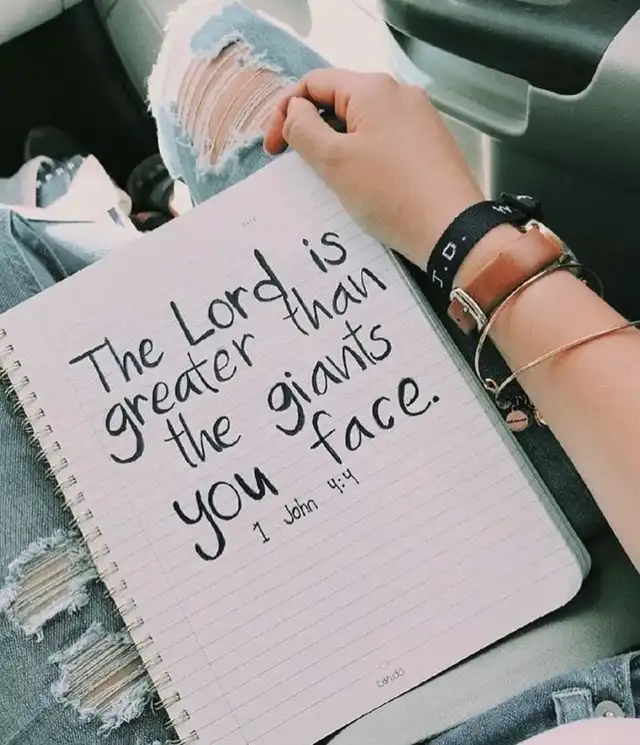 The Lord is
greater than
the giants
you face.
1 John 4:4
J.D. W
ban.do